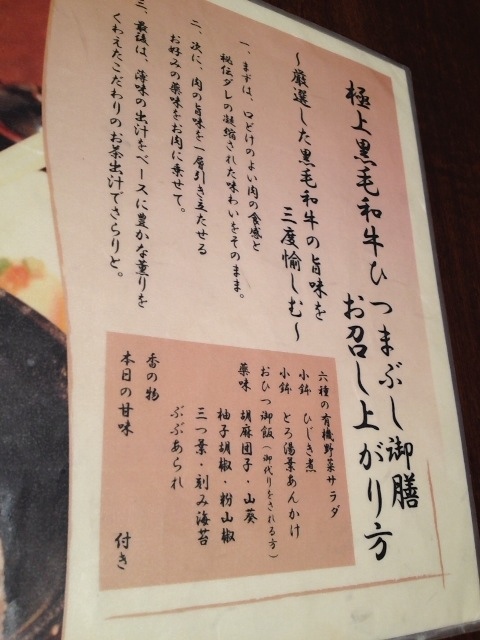 極上黒毛和牛ひつまぶし御膳
お召し上がり方
～厳選した黒毛和牛の旨味を
三度愉しむ～
一、まずは、口どけのよい肉の食感と
秘伝ダレの凝縮された味わいをそのまま。
二、次に、肉の旨味を一層引き立たせる
お好みの薬味をお肉に乗せて。
三、最後は、薄味の出汁をベースに豊かな薫りを
くわえたこだわりのお茶出汁でさらりと。
六種の有機野菜サラダ
小鉢 ひじき煮
小鉢 とろ湯葉あんかけ
おひつ御飯(御代りをされる方)
薬味 胡麻団子・山葵
柚子胡椒・粉山椒
三つ葉・刻み海苔
ぶぶあられ
香の物
本日の甘味 付き